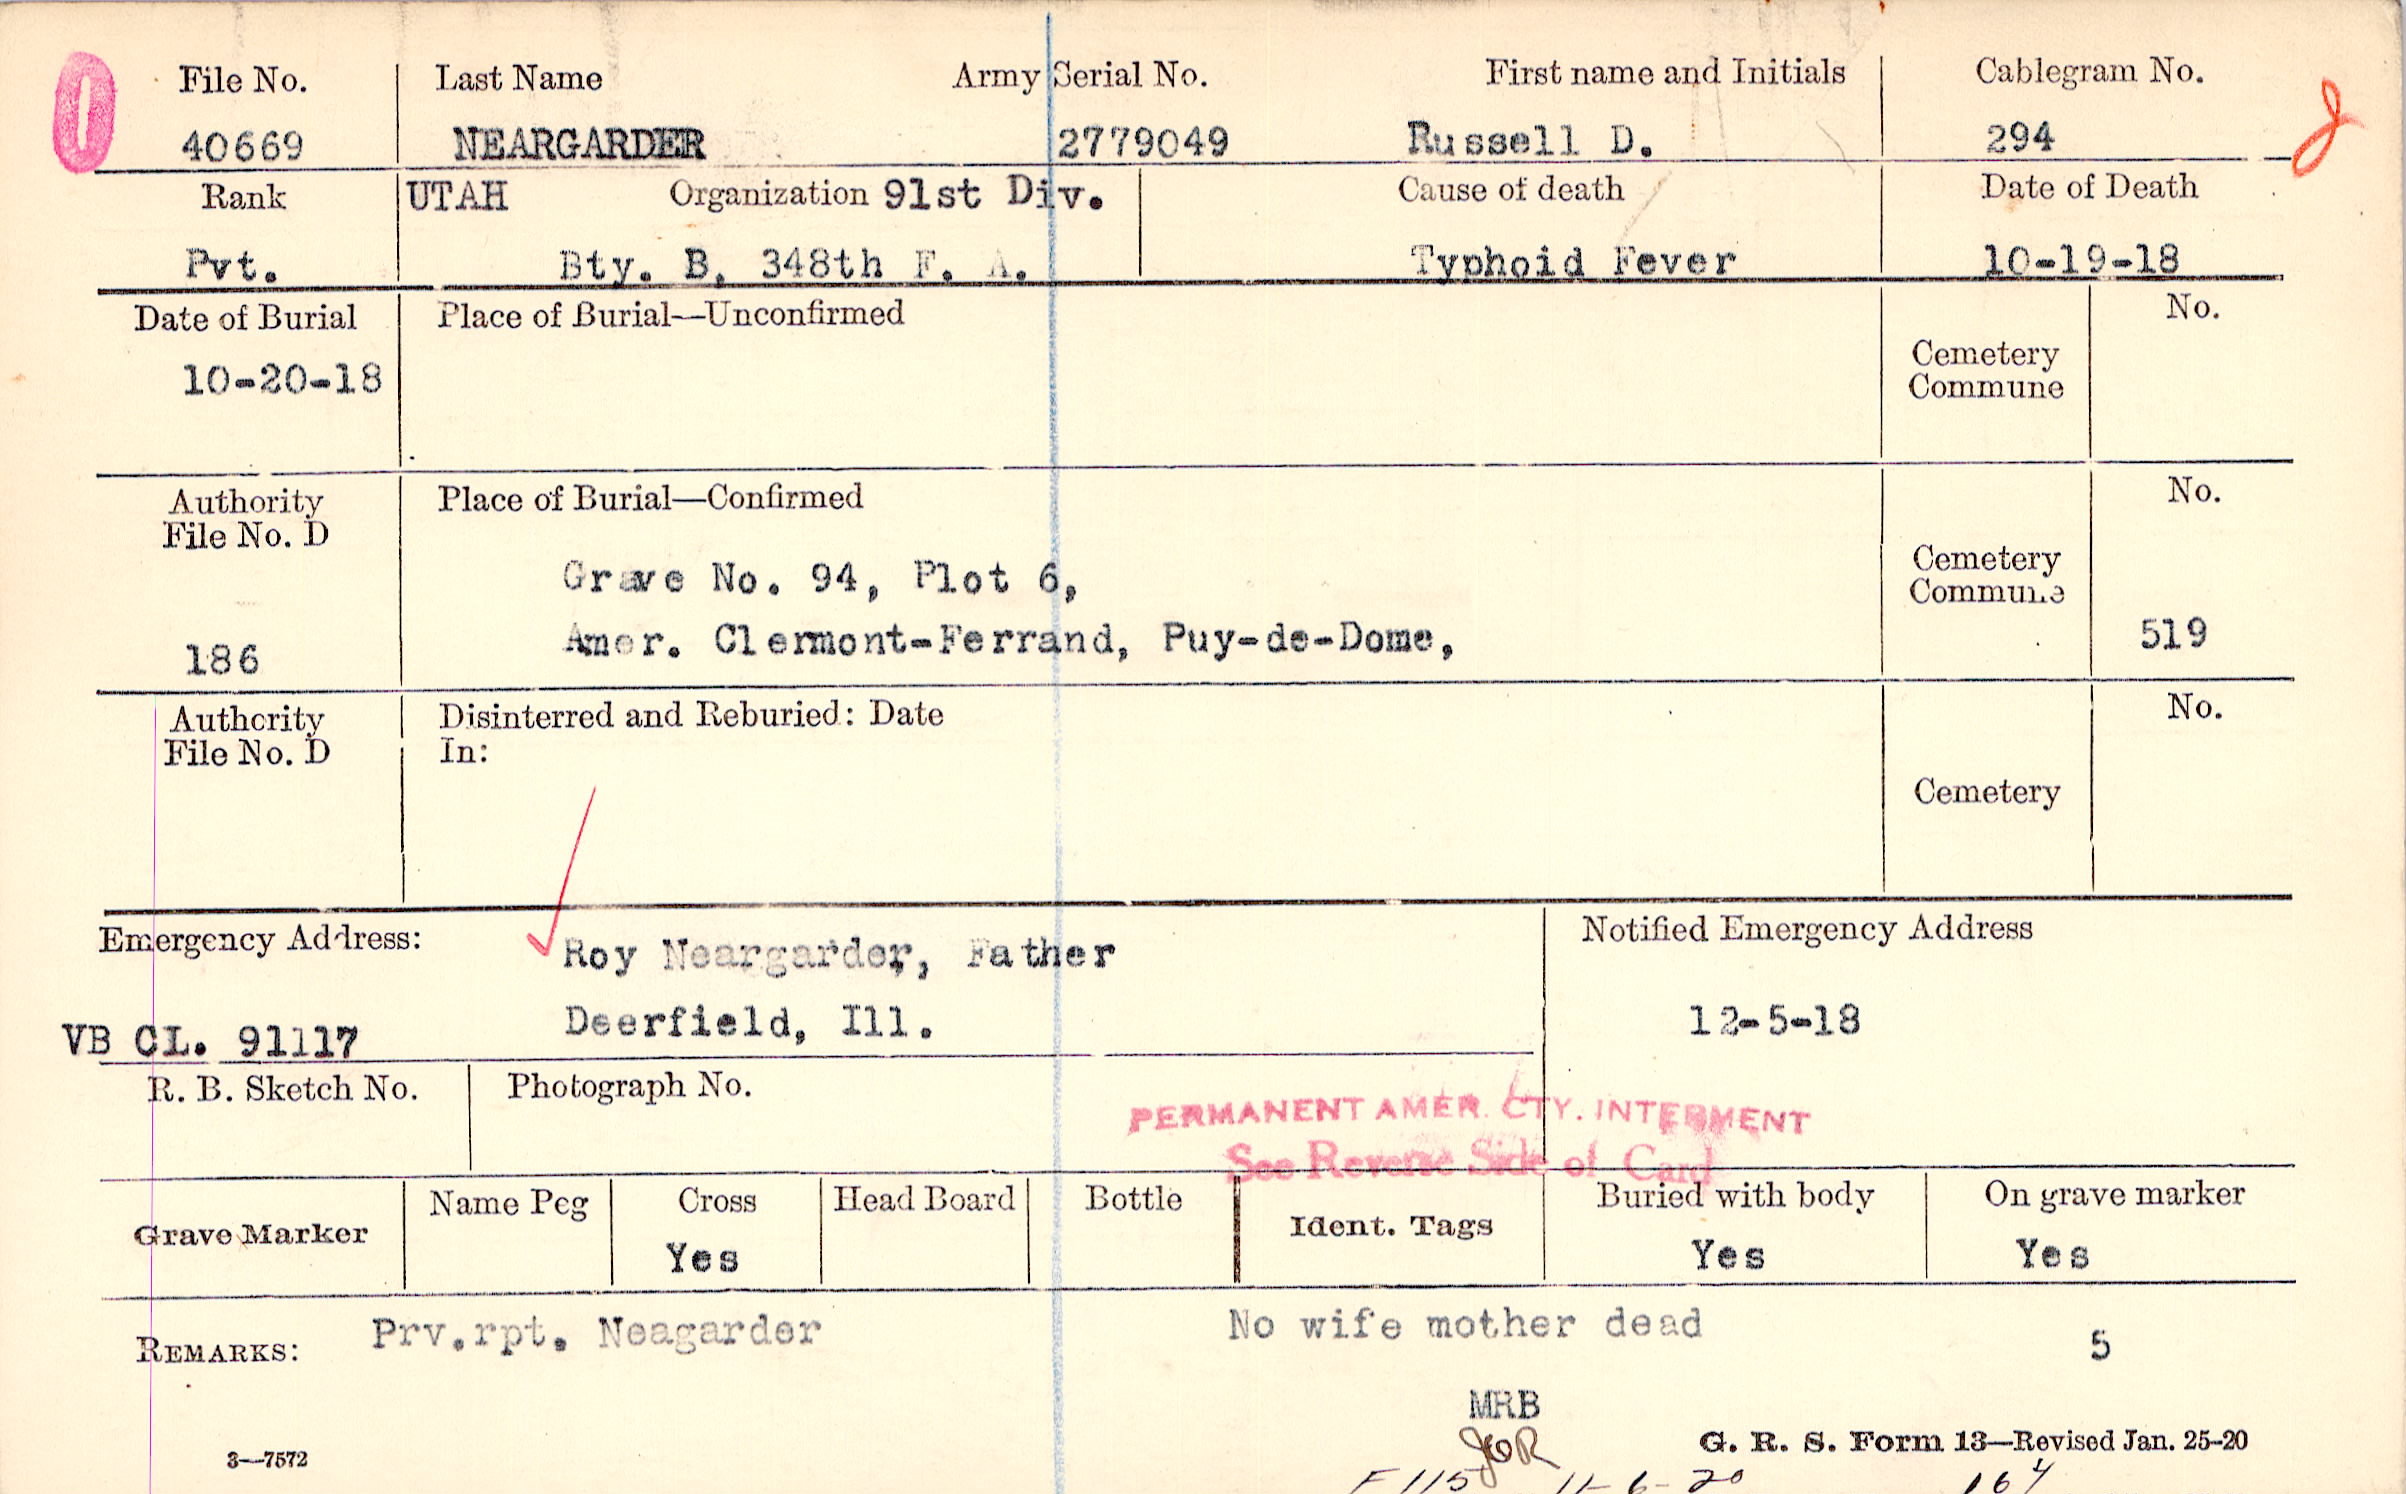 File No. Last Name Army Serial No. First name and Initials Cablegram No.
40669 NEARGARDER 2779049 Russell D. 294
Rank UTAH Organization 91st Div. Cause of death Date of Death
Pvt. Bty. B, 348th F. A. Typhoid Fever 10-19-18
Date of Burial Place of Burial—Unconfirmed No.
10-20-18 Cemetery
Commune
Authority Place of Burial—Confirmed No.
File No. D
Grave No. 94, Plot 6, Cemetery
Commune
186 Amer. Clermont-Ferrand, Puy-de-Dome, 519
Authority Disinterred and Reburied: Date No.
File No. D In:
Cemetery
Emergency Address: Roy Neargarder, Father Notified Emergency Address
VB CL. 91117 Deerfield, Ill. 12-5-18
R. B. Sketch No. Photograph No.
PERMANENT AMER. CTY. INTERMENT
See Reverse Side of Card
Grave Marker Name Peg Cross Head Board Bottle Ident. Tags Buried with body On grave marker
Yes Yes Yes
REMARKS: Prv.rpt. Neagarder No wife mother dead 5
MRB
JOR
3—7572 G. R. S. Form 13—Revised Jan. 25-20
F115 11-6-20 164